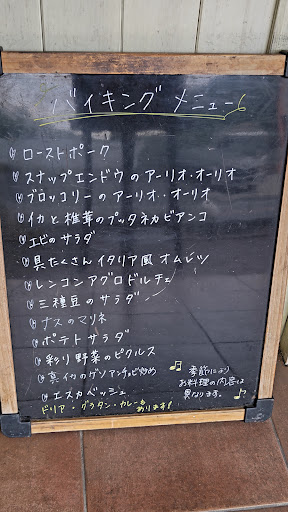 バイキングメニュー
ローストポーク
スナップエンドウのアーリオ・オーリオ
ブロッコリーのアーリオ・オーリオ
イカと椎茸のプッタネスカビアンコ
エビのサラダ
具たくさんイタリア風オムレツ
レンコンアグロドルチェ
三種豆のサラダ
ナスのマリネ
ポテトサラダ
彩り野菜のピクルス
真イカのゲソアンチョビ炒め
エスカベッシュ
ドリア・グラタン・カレーもあります!
季節により
お料理の内容は
異なります。